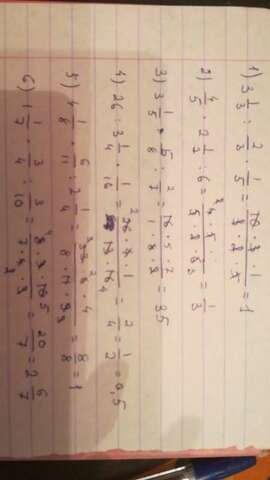 1) 3 1/3 : 2/3 · 1/5 = 10 · 3 · 1 / 3 · 2 · 5 = 1
2) 4/5 · 2 1/2 : 6 = 4 · 5 / 5 · 2 · 6 = 1/3
3) 3 1/5 · 5/8 : 2/7 = 16 · 5 · 7 / 1 · 8 · 2 = 35
4) 26 : 3 1/4 · 1/16 = 26 · 4 · 1 / 13 · 16 = 2/4 = 1/2 = 0,5
5) 4 1/8 · 6/11 : 2 1/4 = 33 · 6 · 4 / 8 · 11 · 9 = 8/8 = 1
6) 1 1/7 · 3/4 : 3/10 = 8 · 3 · 10 / 7 · 4 · 3 = 20/7 = 2 6/7